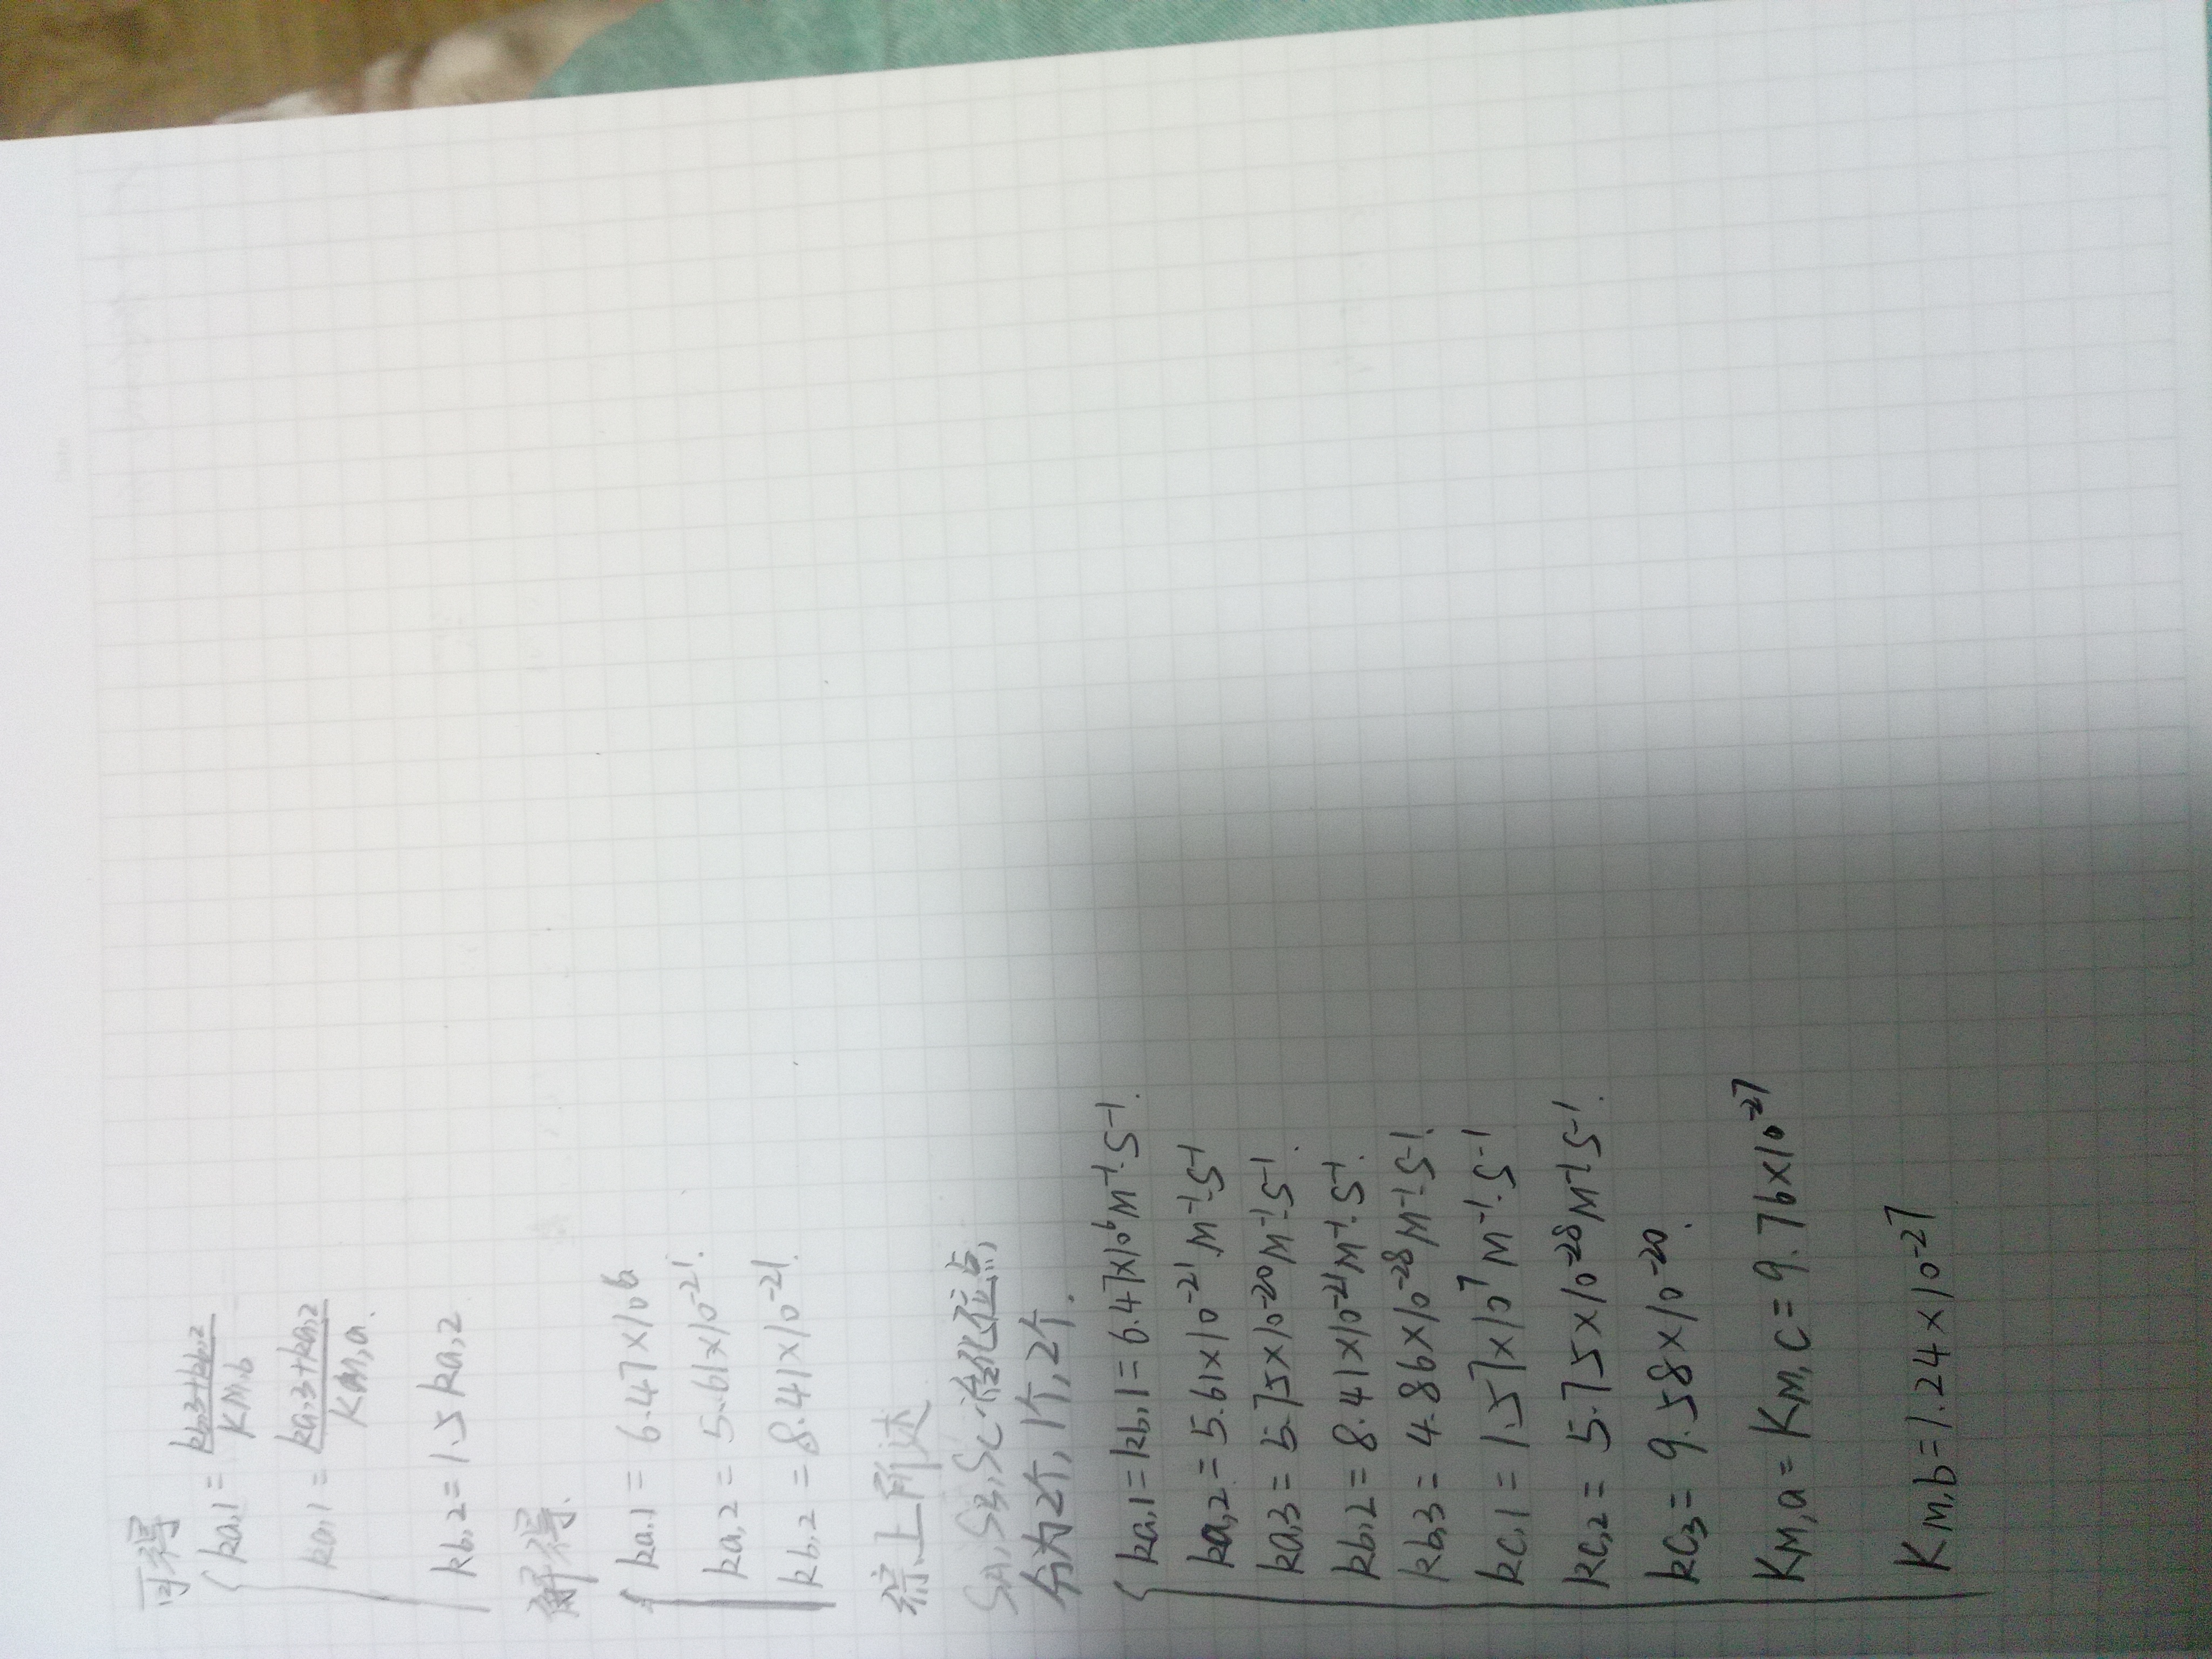 可得
ka,1 = (kb,3+kb,2)/KM,b
ka,1 = (ka,3+ka,2)/KM,a.
kb,2 = 1.5 ka,2
解得.
ka,1 = 6.47×10⁶
ka,2 = 5.61×10⁻²¹.
kb,2 = 8.41×10⁻²¹.
综上所述
SA, SB, SC 催化位点,
分为2个, 1个, 2个.
ka,1 = kb,1 = 6.47×10⁶ M⁻¹·S⁻¹.
ka,2 = 5.61×10⁻²¹ M⁻¹·S⁻¹
ka,3 = 5.75×10⁻²⁰ M⁻¹·S⁻¹.
kb,2 = 8.41×10⁻²¹ M⁻¹·S⁻¹.
kb,3 = 4.86×10⁻²⁸ M⁻¹·S⁻¹.
kc,1 = 1.57×10⁷ M⁻¹·S⁻¹
kc,2 = 5.75×10⁻²⁸ M⁻¹·S⁻¹.
kc3 = 9.58×10⁻²⁰.
KM,a = KM,C = 9.76×10⁻²⁷
KM,b = 1.24×10⁻²⁷